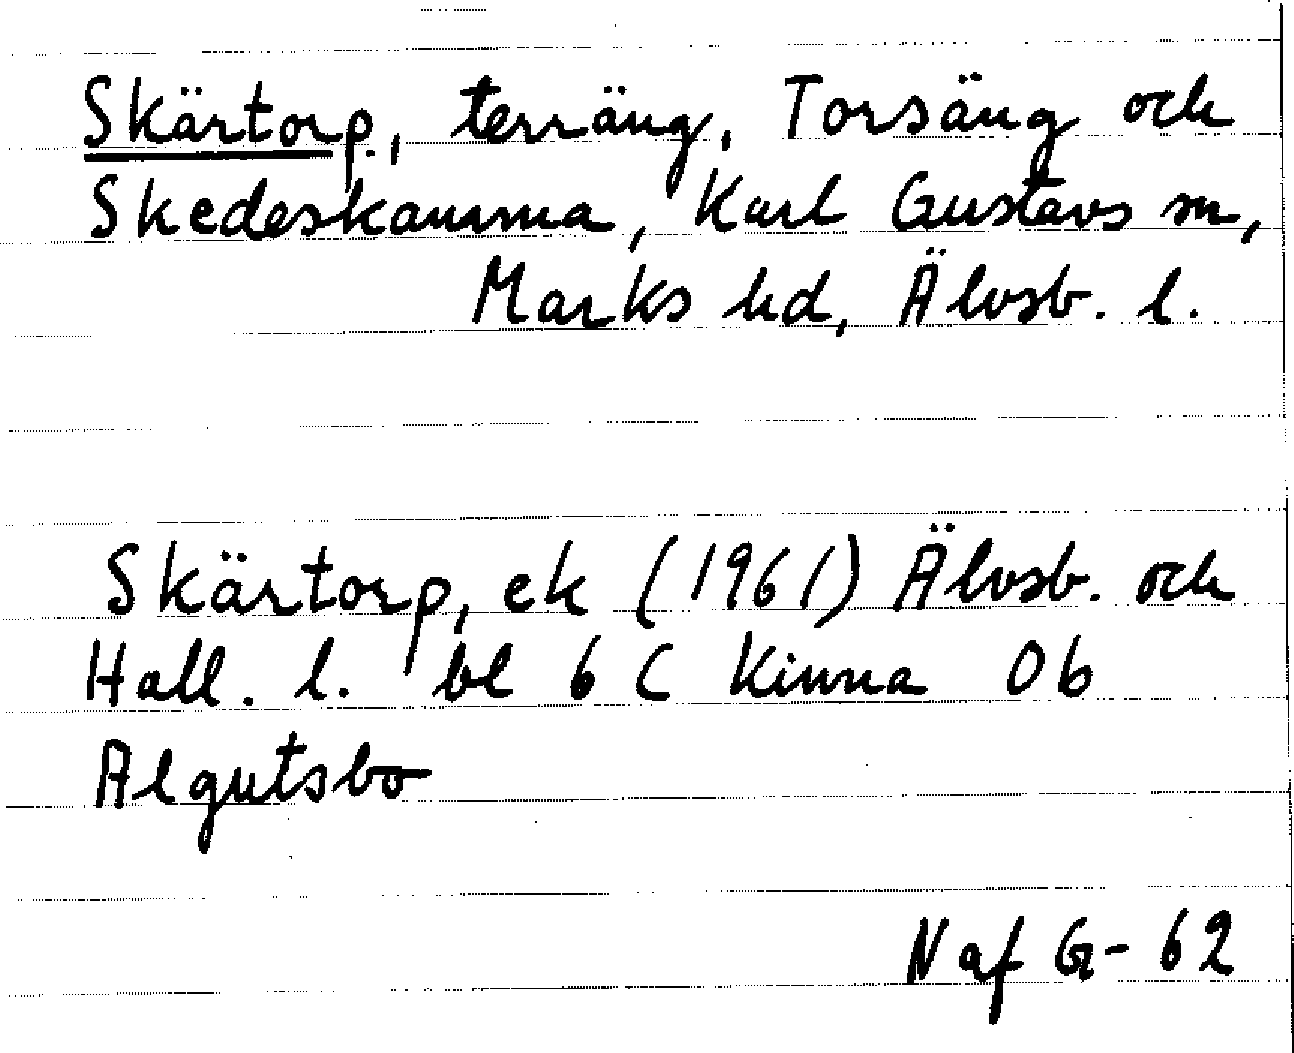 Skärtorp, terräng, Torsäng och
Skedeskamma, Karl Gustavs sn,
Marks hd, Älvsb. l.
Skärtorp, ek (1961) Älvsb. och
Hall. l. bl 6 C Kinna 0b
Algutsbo
N af G-62